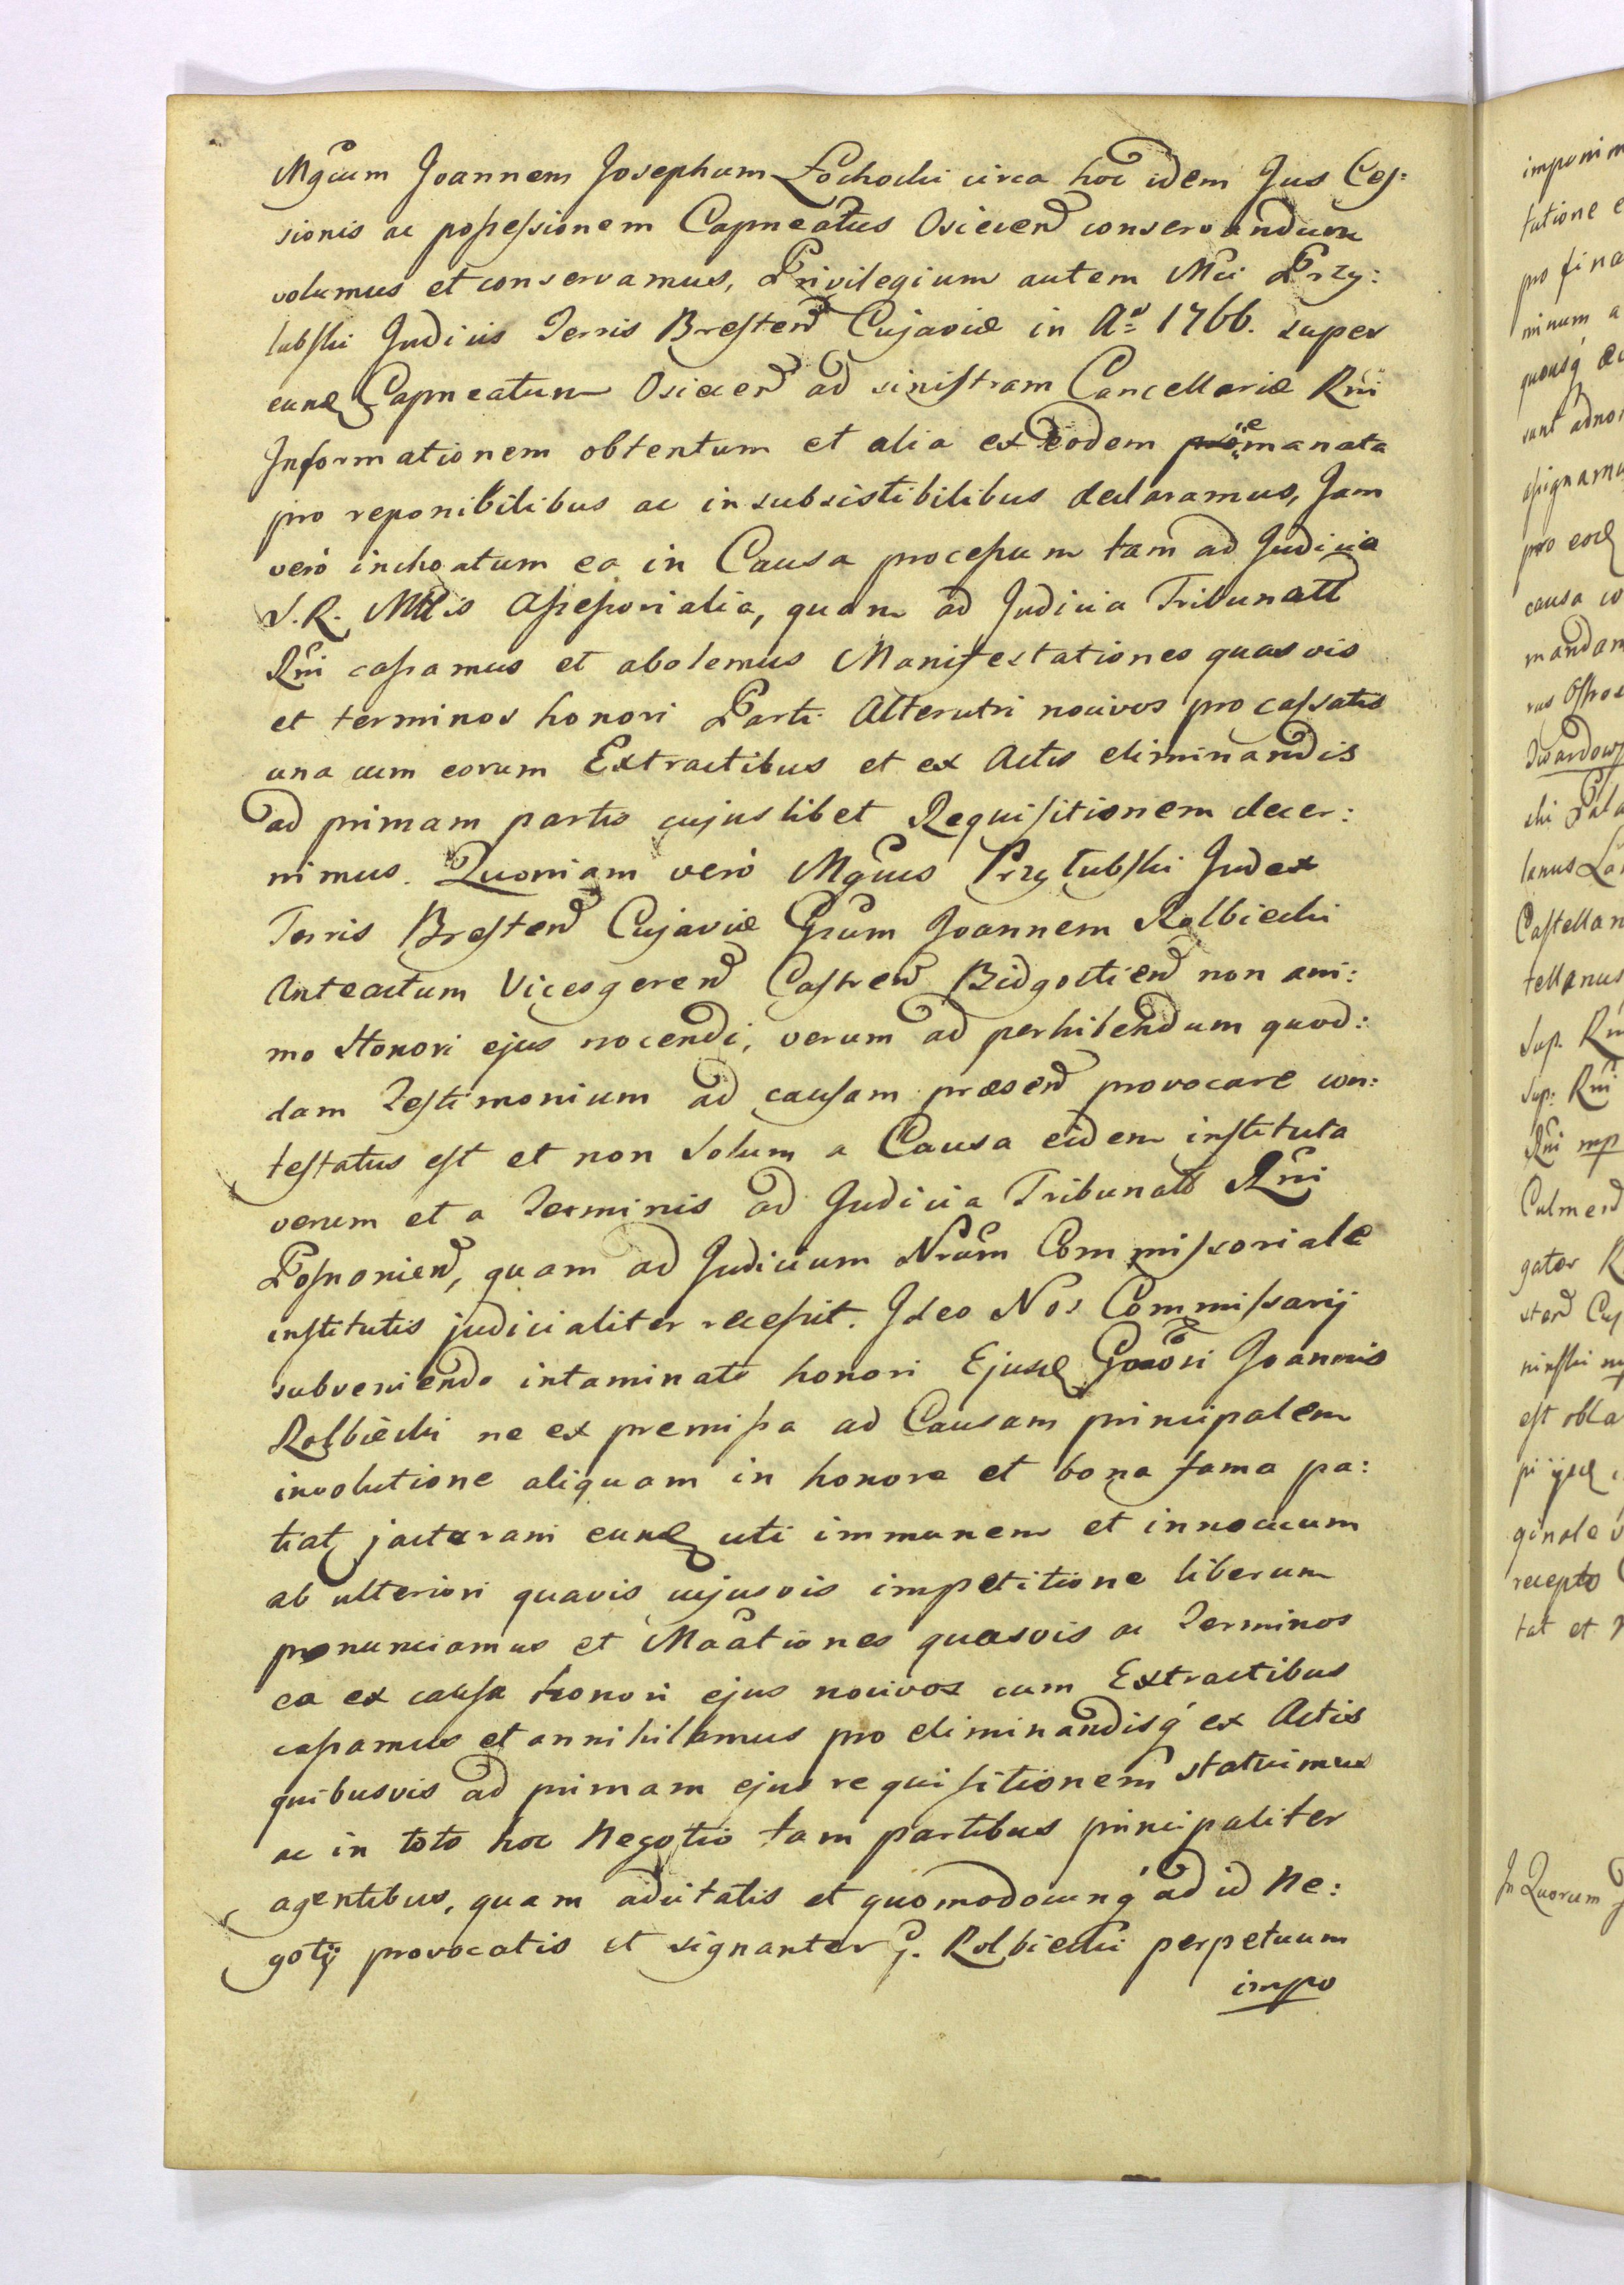 Mgcum Joannem Josephum Łochocki circa hoc idem Jus Ces:
sionis ac possessionem Capneatus Osiecen conservandum
volumus et conservamus, Privilegium autem Mci Przy:
łubski Judicis Terris Bresten Cujaviæ in Ao 1766. super
eund Capneatum Osiecen ad sinistram Cancellariæ Rni
Informationem obtentum et alia ex eodem emanata
pro reponibilibus ac insubsistibilibus declaramus, Jam
verò inchoatum ea in Causa processum tam ad Judicia
S.R. Mttis Assessorialia, quam ad Judicia Tribunatt
Rni cassamus et abolemus Manifestationes quasvis
et terminos honori Parti Alterutri nocivos pro cassatis
una cum eorum Extractibus et ex Actis eliminandis
ad primam partis cujuslibet Requisitionem decer:
nimus. Quoniam verò Mgcus Przyłubski Judex
Terris Bresten Cujaviæ Grsum Joannem Rolbiecki
Anteactum Vicesgeren Castren Bidgostien non ani:
mo Honori ejus nocendi, verum ad perhibendum quod:
dam Testimonium ad causam præsen provocare con:
testatus est et non solum a Causa eidem instituta
verum et a Terminis ad Judicia Tribunatt Rni
Posnonien, quam ad Judicium Nrum Commissoriale
institutis judicialiter recessit. Ideo Nos Commissarij
subveniendo intaminato honori Ejusd Gnosi Joannis
Rolbiecki ne ex premissa ad Causam principalem
involutione aliquam in honore et bona fama pa:
tiat jacturam eund uti immunem et innocuum
ab ulteriori quavis cujusvis impetitione liberum
pronunciamus et Maationes quasvis ac Terminos
ea ex causa honori ejus nocivos cum Extractibus
cassamus et annihilamus pro eliminandisq ex Actis
quibusvis ad primam ejus requisitionem statuimus
ac in toto hoc Negotio tam partibus principaliter
agentibus, quam adcitatis et quomodocunq ad id Ne:
gotij provocatis et signanter G. Rolbiecki perpetuum
impo
imponim
tatione e
pro fina
minum a
quousq
sunt adno
assignamu
pro eod
causa co
mandam
rus Ostro
Twardows
cki Pala
lanus
Castellan
tellanus
Sup. Rn
Sup: Rni
Rni mp
Culmen
gator R
sten Cuj
ninski m
est obla
pi ijsd
ginale
recepto
tat et
In Quorum